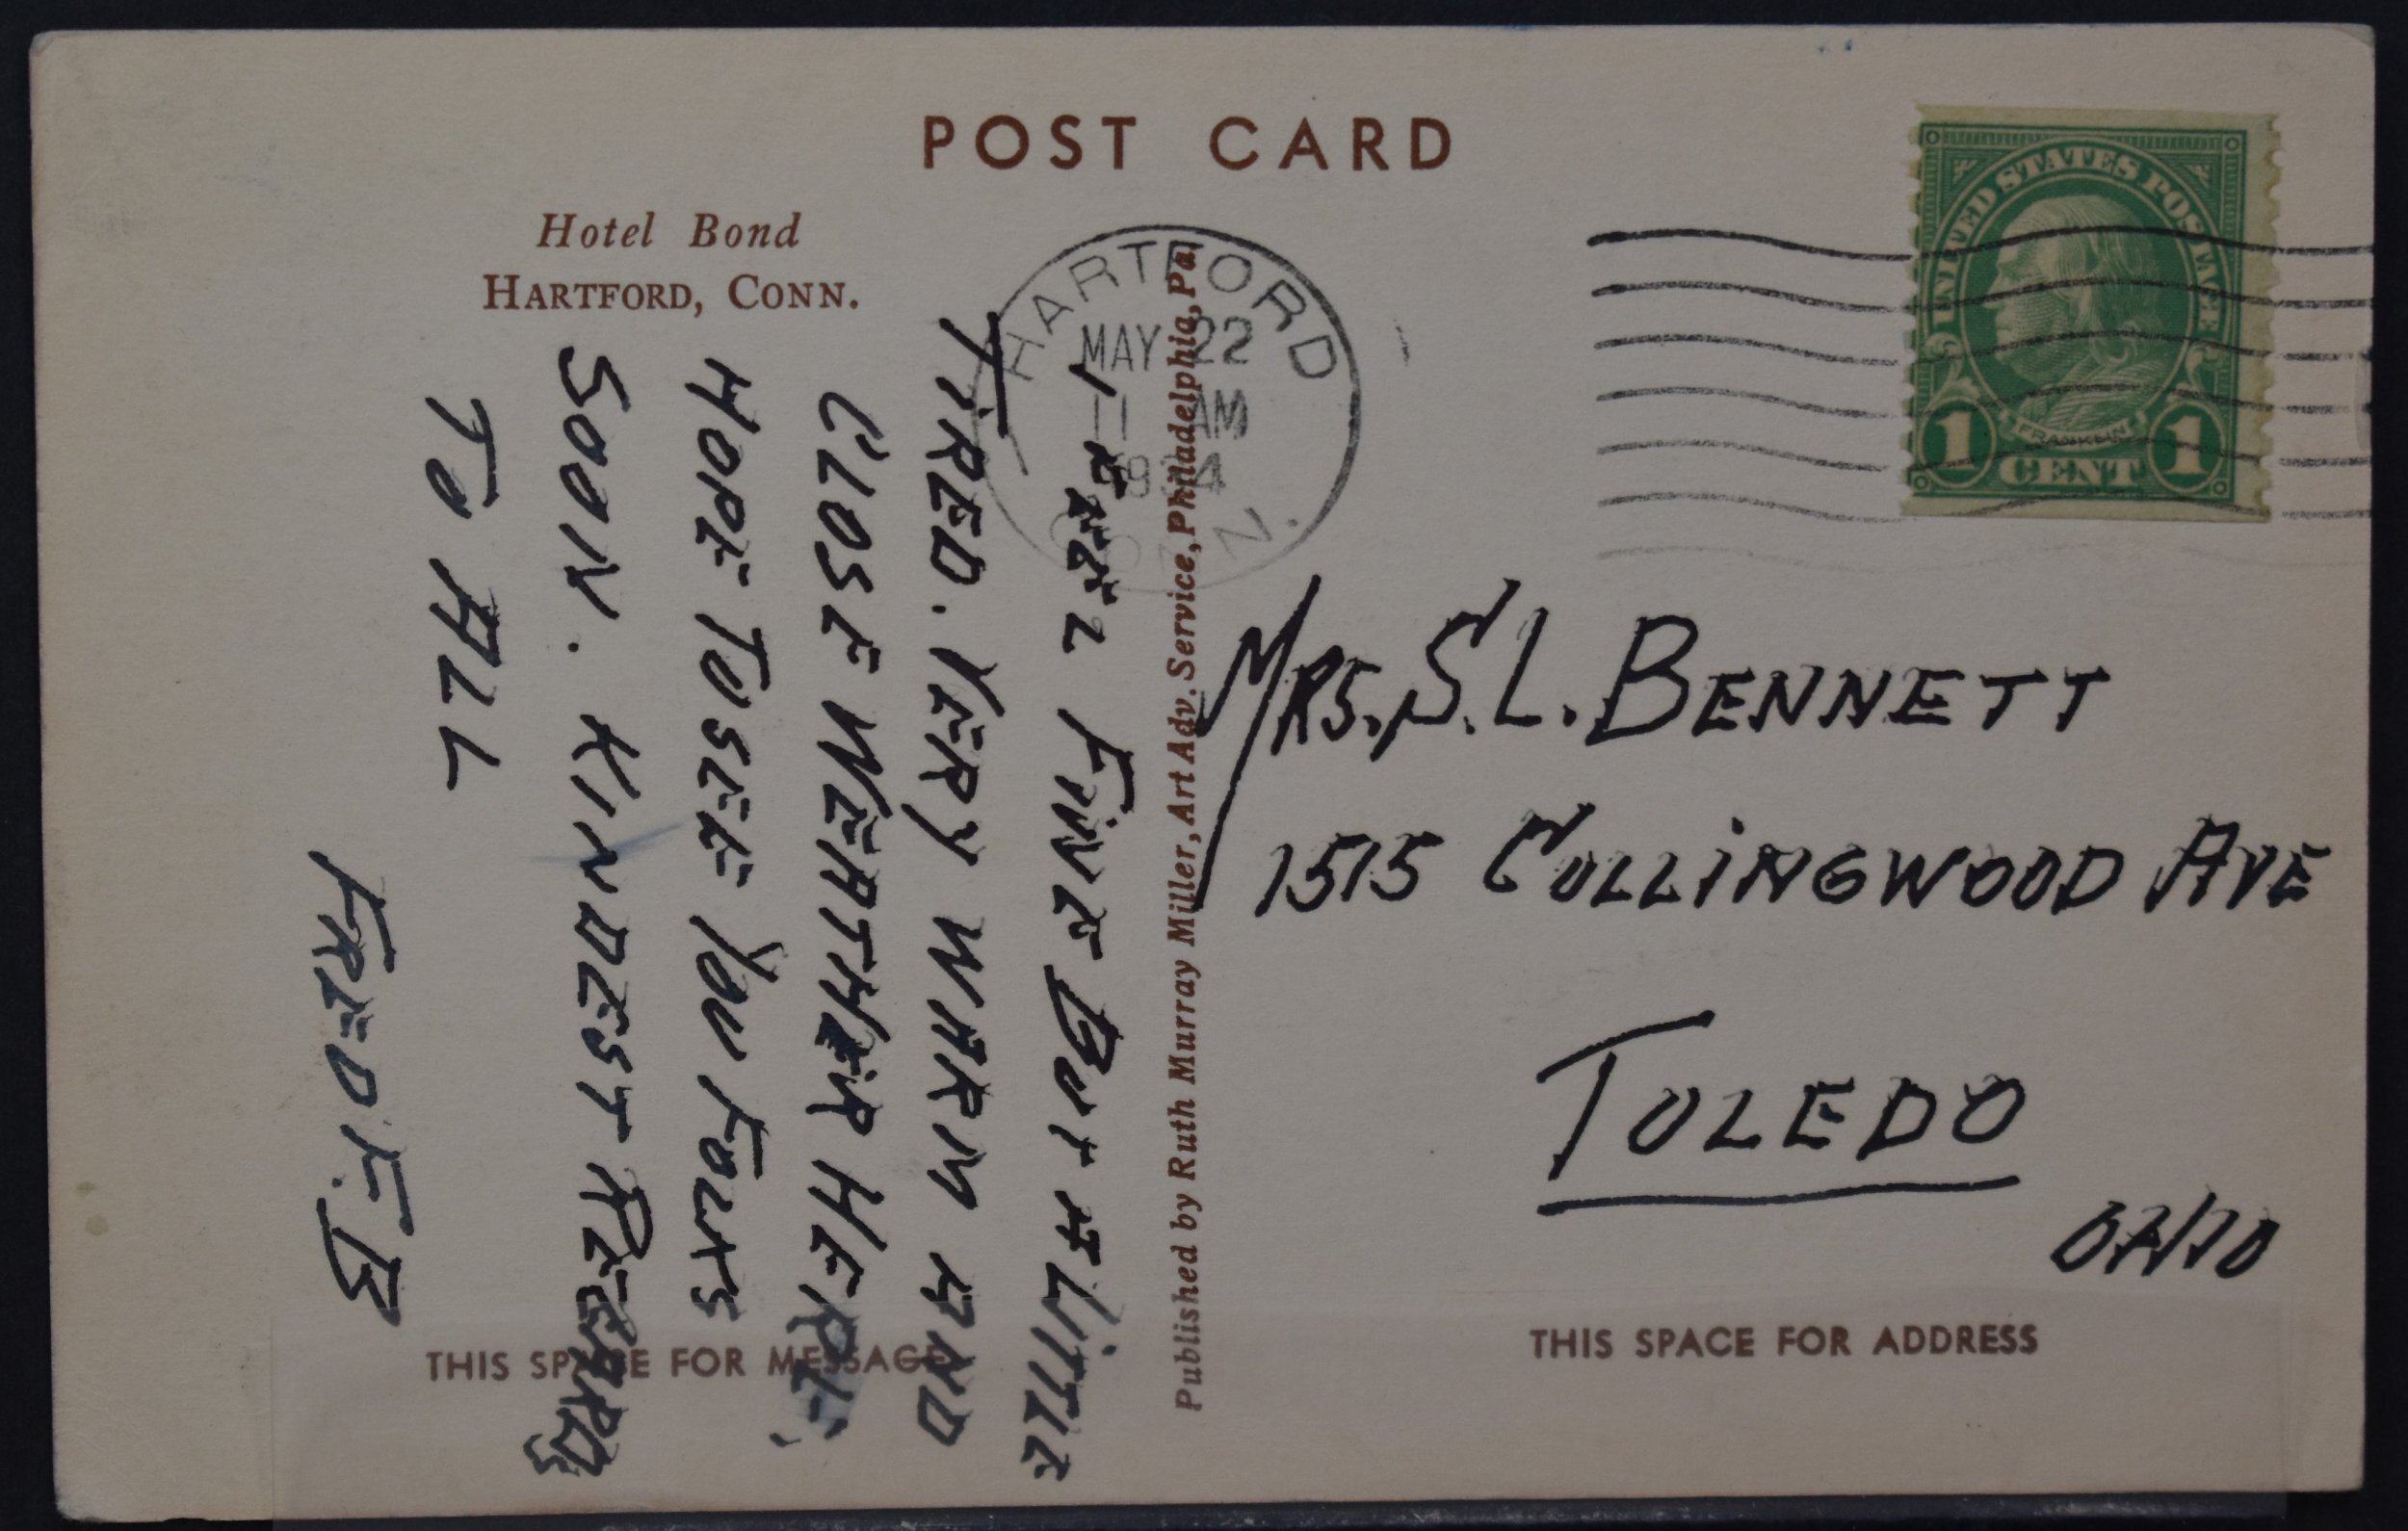 POST CARD
Hotel Bond
HARTFORD, CONN.
HARTFORD
MAY 22
11 AM
1934
CONN.
UNITED STATES POSTAGE
FRANKLIN
1 CENT 1
I FEEL FINE BUT A LITTLE
TIRED. VERY WARM AND
CLOSE WEATHER HERE,
HOPE TO SEE YOU FOLKS
SOON. KINDEST REGARDS
TO ALL
FRED F.B
Published by Ruth Murray Miller, Art Adv. Service, Philadelphia, Pa.
MRS. S. L. BENNETT
1515 COLLINGWOOD AVE
TOLEDO
OHIO
THIS SPACE FOR MESSAGE
THIS SPACE FOR ADDRESS